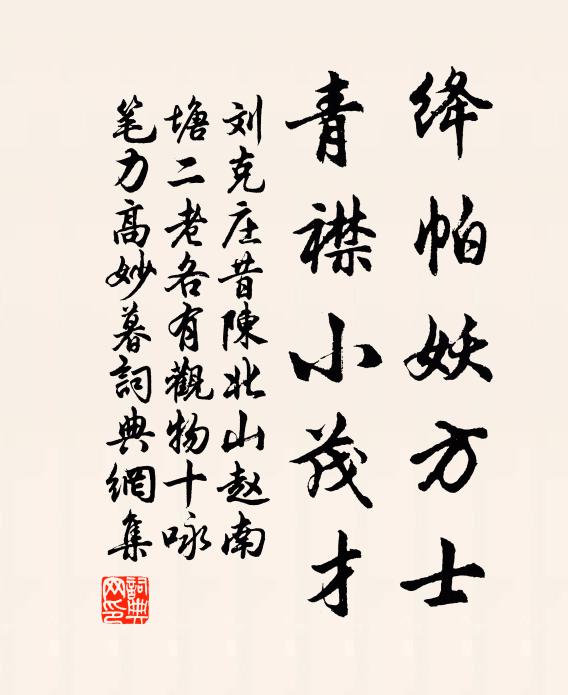 绛帕妖方士
青襟小茂才
刘克庄昔陳北山赵南
塘二老各有觀物十咏
笔力高妙暮詞典網集
詞典網印